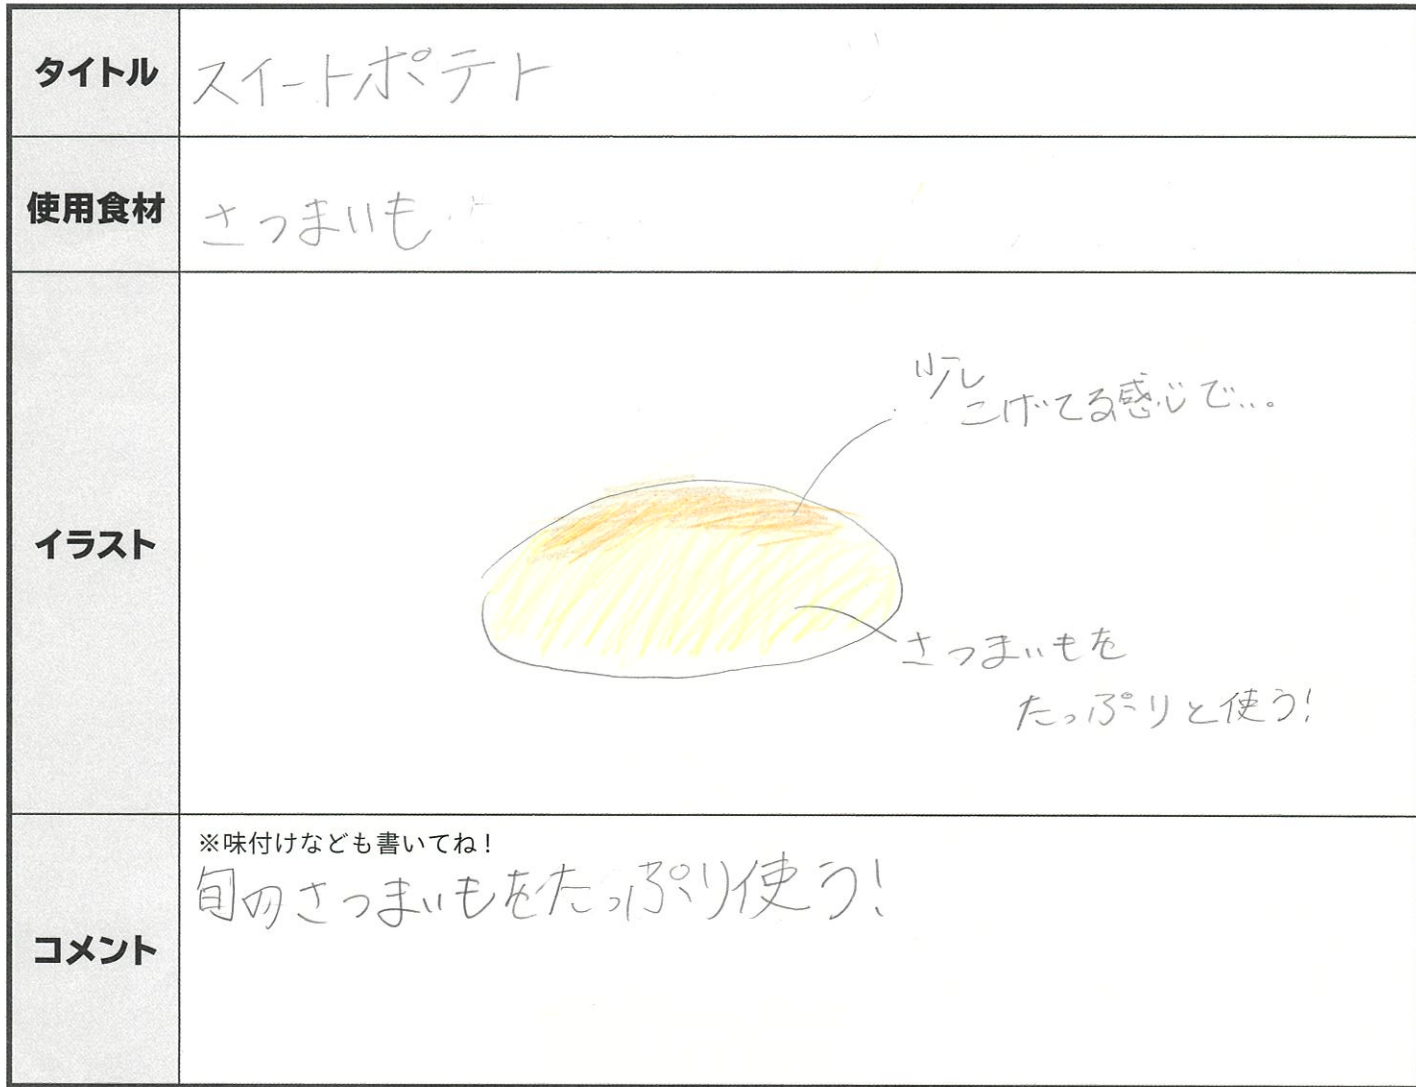 タイトル
スイートポテト
使用食材
さつまいも
イラスト
少し
こげてる感じで…。
さつまいもを
たっぷりと使う!
コメント
※味付けなども書いてね!
旬のさつまいもをたっぷり使う!